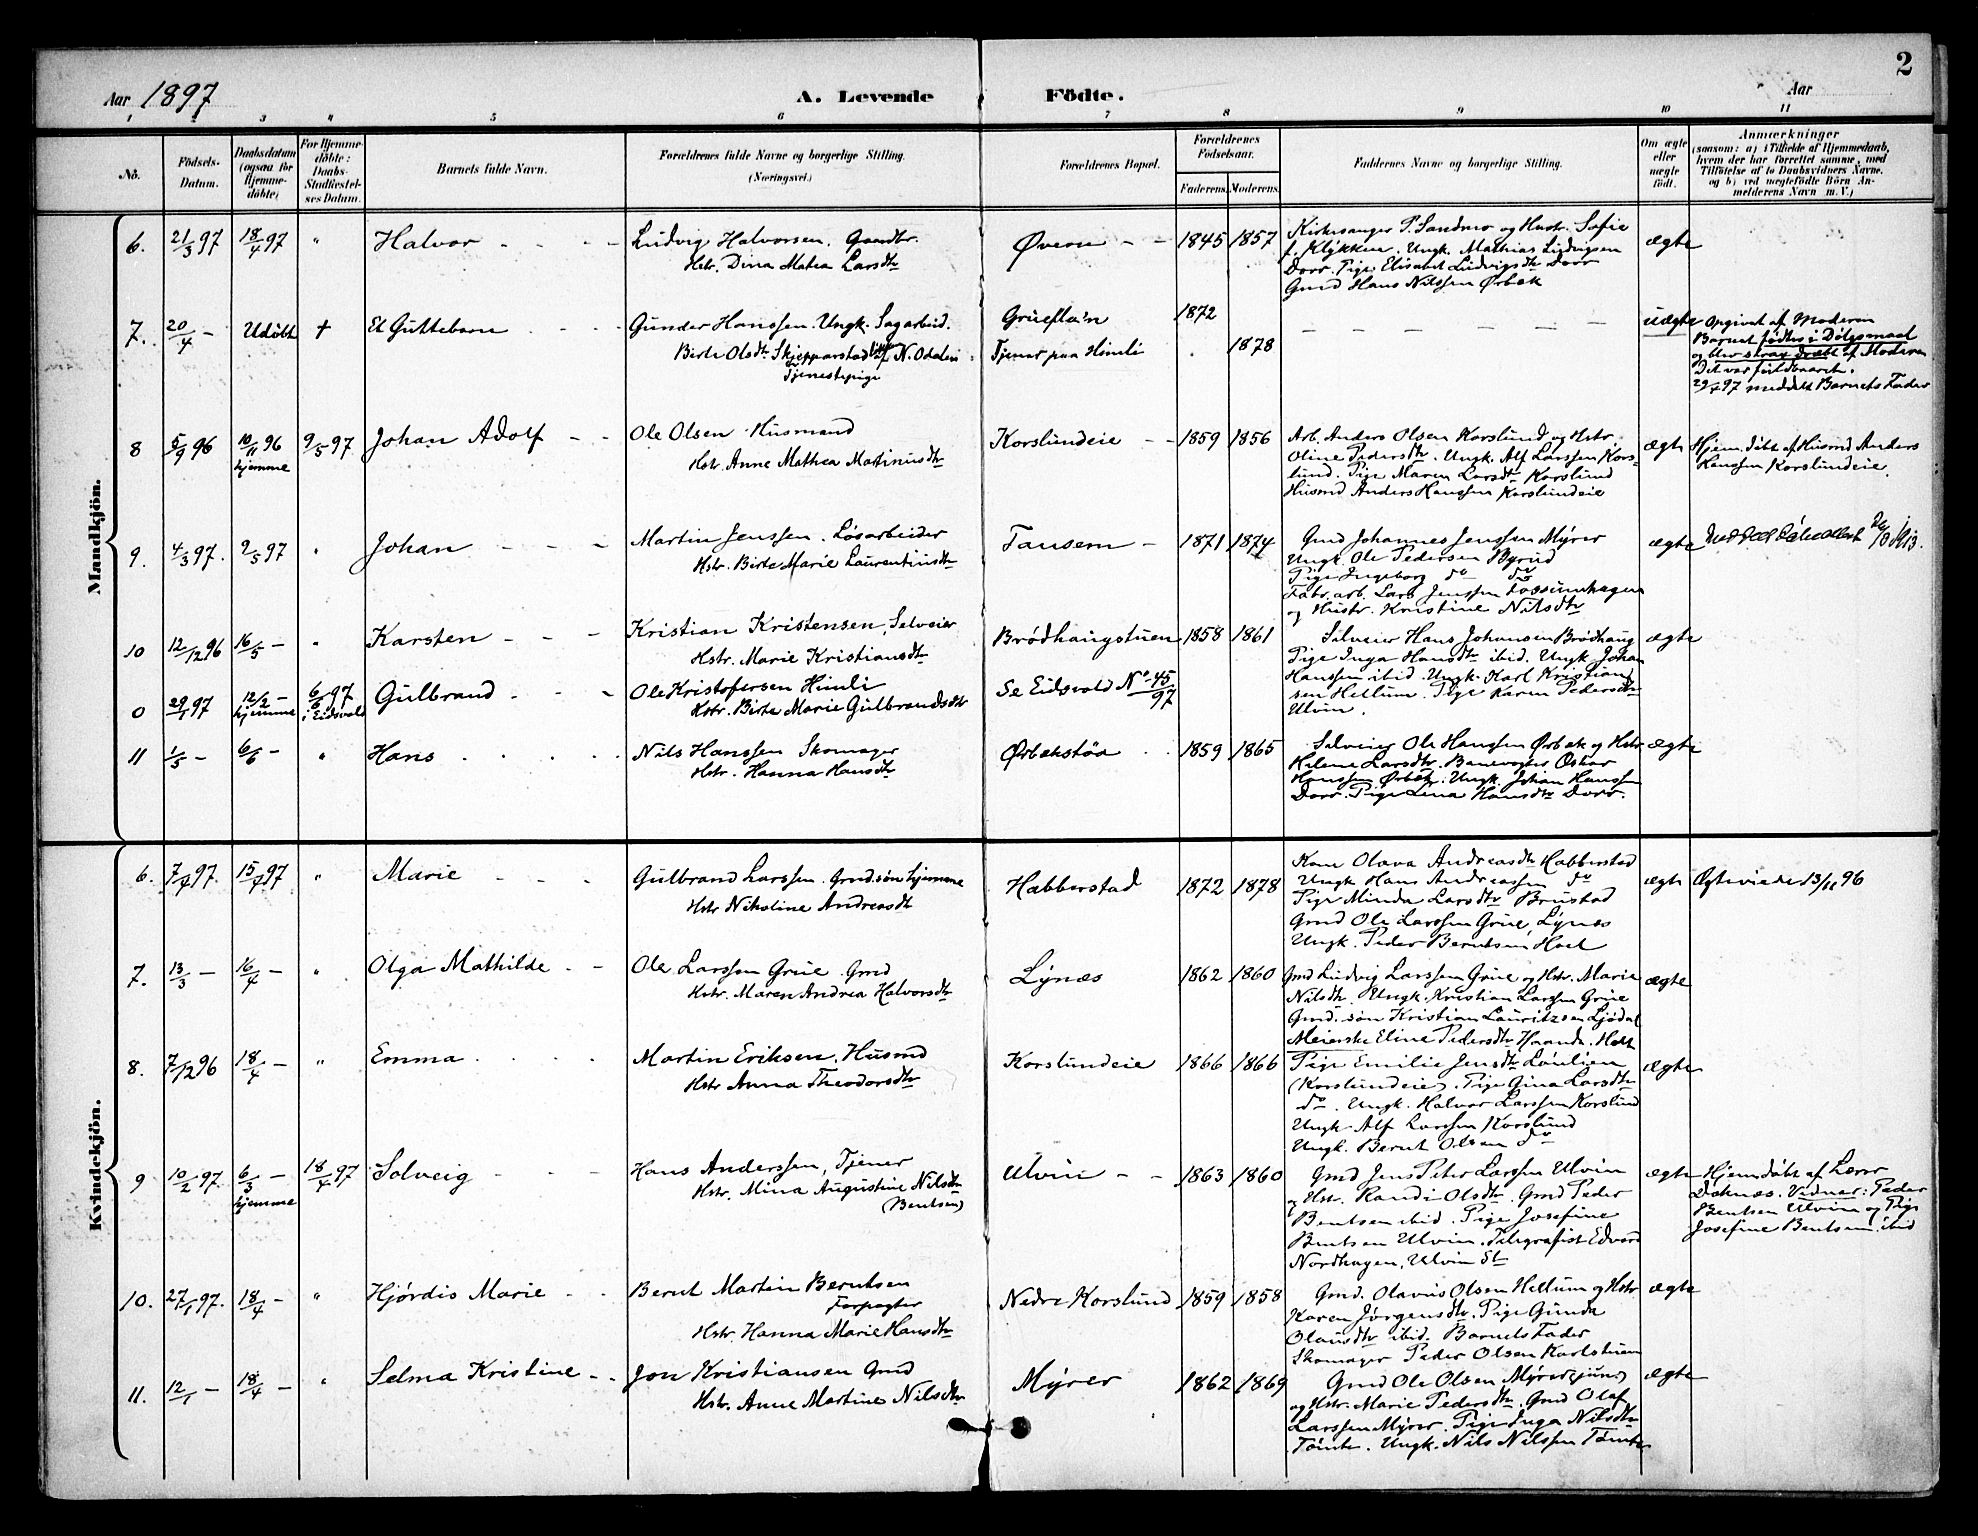 2
Aar 1897
A. Levende Födte.
Aar
1 2 3 4 5 6 7 8 9 10 11
No.
Födsels-
Datum.
Daabsdatum
(ogsaa for
Hjemme-
döbte)
For Hjemme-
döbte:
Daabs-
Stadfæstel-
ses Datum.
Barnets fulde Navn.
Forældrenes fulde Navne og borgerlige Stilling.
(Næringsvei.)
Forældrenes Bopæl.
Forældrenes
Födselsaar.
Faderens. Moderens.
Faddernes Navne og borgerlige Stilling.
Om ægte
eller
uægte
födt.
Anmærkninger
(saasom: a) i Tilfælde af Hjemmedaab,
hvem der har forrettet samme, med
Tilföielse af to Daabsvidners Navne.
og b) ved uegtefödte Börn An-
melderens Navn m. V.)
Mandkjön.
6. 21/3 97 18/4 97 " Halvor
Ludvig Halvorsen. Gaardbr.
Hstr. Dina Mathea Larsdtr
Øvern 1845 1857
Kirkesanger P. Sandmo og Hustr. Sofie
f. Klykken. Ungk. Mathias Ludvigsen
Dorr. Pige Elisabet Ludvigsdtr Dorr
Gmd Hans Nilssen Ørbæk
ægte
7. 20/4 — Udöbt + Et Guttebarn
Gunder Hanssen. Ungk. Sagarbeid.
Birte Olsdtr Skjepparstad af N. Odalen
Tjenestepige
Grueflaen 1872
Tjener paa Himli 1878
uægte
Opgivet af Moderen
Barnet födtes i Dölgsmaal
og blev strax dræbt af Moderen
Det var fuldbaaret.
29/4 97 meddelt Barnets Fader
8 5/9 96 10/11 96 hjemme 9/5 97 Johan Adolf
Ole Olsen Husmand
Hstr. Anne Mathea Martinusdtr
Korslundeie 1859 1856
Arb. Anders Olsen Korslund og Hstr.
Oline Pedersdtr. Ungk. Alf Larssen Kors-
lund. Pige Maren Larsdtr Korslund
Husmd Anders Hanssen Korslundeie
ægte
Hjem. döbt af Husmd Anders
Hanssen Korslundeie.
9. 4/3 97. 9/5 97 " Johan
Martin Jenssen. Løsarbeider
Hstr. Birte Marie Laurentiusdtr
Tausem 1871 1874
Gmd Johannes Jenssen Myrer
Ungk. Ole Pedersen Byrud
Pige Ingeborg do do
Fabr. arb. Lars Jenssen Fossumhagen
og Hustr. Kristine Nilsdtr
ægte
10 12/12 96 16/5 — " Karsten
Kristian Kristensen, Selveier
Hstr. Marie Kristiansdtr
Brødhaugstuen 1858 1861
Selveier Hans Johansen Brødhaug
Pige Inga Hansdtr ibid. Ungk Johan
Hanssen ibid. Ungk. Karl Kristian-
sen Hellum. Pige Karen Pedersdtr
Ulvin.
ægte
0 29/1 97 12/2 — hjemme 6/6 97 i Eidsvold Gulbrand
Ole Kristofersen Himli
Hstr. Birte Marie Gulbrandsdtr
Se Eidsvold No 45/97
11 1/5 — 6/6 — " Hans
Nils Hanssen Skomager
Hstr. Hanna Hansdtr
Ørbekstøa 1859 1865
Selveier Ole Hanssen Ørbæk og Hstr
Helene Larsdtr. Banevogter Oskar
Hanssen Ørbæk. Ungk. Johan Hanssen
Dorr. Pige Lina Hansdtr Dorr.
ægte
Kvindekjön.
6. 7/4 97. 15/4 97 " Marie
Gulbrand Larssen. Gmd. søn hjemme
Hstr Nikoline Andreasdtr
Habberstad 1872 1878
Kone Olava Andreasdtr Habberstad
Ungk Hans Andreassen do
Pige Minda Larsdtr Brustad
Gmd Ole Larssen Grue, Lynæs
Ungk. Peder Berntsen Hoel
ægte
Ægteviede 13/11 96
7. 13/3 — 16/4 — " Olga Mathilde
Ole Larssen Grue. Gmd
Hstr. Maren Andrea Halvorsdtr
Lynæs 1862 1860
Gmd Ludvig Larssen Grue og Hstr. Marie
Nilsdtr. Ungk. Kristian Larssen Grue
Gmd. søn Kristian Lauritzsen Ljødal
Meierske Eline Pedersdtr Haanda. Holt
ægte
8. 7/12 96 18/4 — " Emma
Martin Eriksen, Husmd
Hstr Anna Theodorsdtr
Korslundeie 1866 1866
Pige Emilie Jensdtr Loulien
(Korslundeie). Pige Gina Larsdtr
do. Ungk. Halvor Larssen Korslund
Ungk Alf Larssen Korslund
Ungk. Bernt Olsen do
ægte
9 10/2 97. 6/3 — hjemme 18/4 97 Solveig
Hans Anderssen, Tjener
Hstr. Mina Augustine Nilsdtr
(Bentsen)
Ulvin 1863 1860
Gmd Jens Peter Larssen Ulvin
og Hstr. Randi Olsdtr. Gmd Peder
Bentsen ibid. Pige Josefine
Bentsen Ulvin. Telegrafist Edvard
Nordhagen, Ulvin St
ægte
Hjemdöbt af Lærer
Døknæs. Vidner: Peder
Bentsen Ulvin og Pige
Josefine Bentsen ibid
10. 27/1 97. 18/4 — " Hjørdis Marie
Bernt Martin Berntsen
Forpagter
Hstr. Hanna Marie Hansdtr
Nedre Korslund 1859 1858
Gmd. Olavus Olsen Hellum og Hstr
Karen Jørgensdtr. Pige Gunda
Olausdtr ibid. Barnets Fader
Skomager Peder Olsen Karlstuen
ægte
11. 12/1 — 18/4 — " Selma Kristine
Jon Kristiansen Gmd
Hstr. Anne Martine Nilsdtr.
Myrer 1862 1869
Gmd Ole Olsen Myrer (jun)
og Hstr. Marie Pedersdtr. Gmd Olaf
Larssen Myrer. Pige Inga Nilsdtr
Tømte. Ungk. Nils Nilssen Tømte
ægte